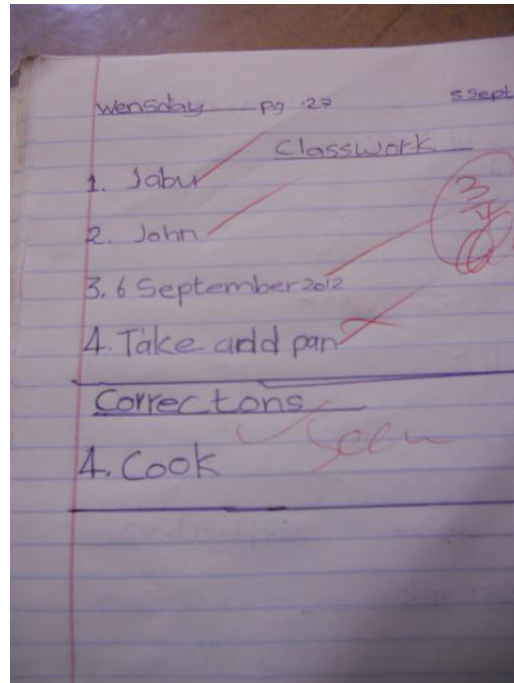 Wensday pg 27 5 Sept
Classwork
1. Jabu
2. John
3. 6 September 2012
4. Take add pan
3/4
Correctons
4. Cook
Seen